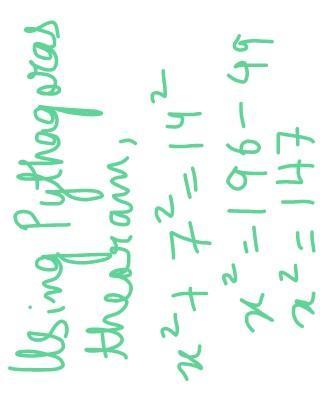 Using Pythagoras
theoram,
x² + 7² = 14²
x² = 196 - 49
x² = 147